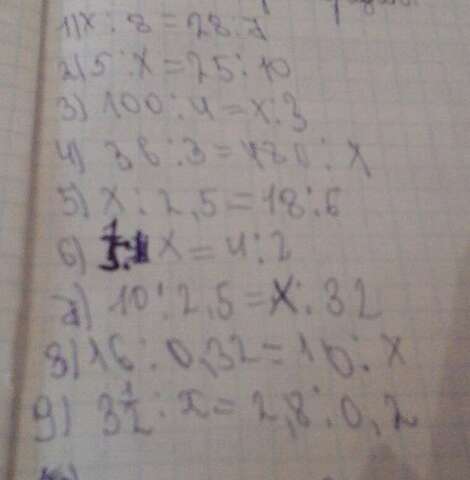 1) x : 8 = 28 : 7
2) 5 : x = 25 : 10
3) 100 : 4 = x : 3
4) 36 : 3 = 180 : x
5) x : 2,5 = 18 : 6
6) x = 4 : 2
7) 10 : 2,5 = x : 32
8) 16 : 0,32 = 10 : x
9) 3 1/2 : x = 2,8 : 0,2